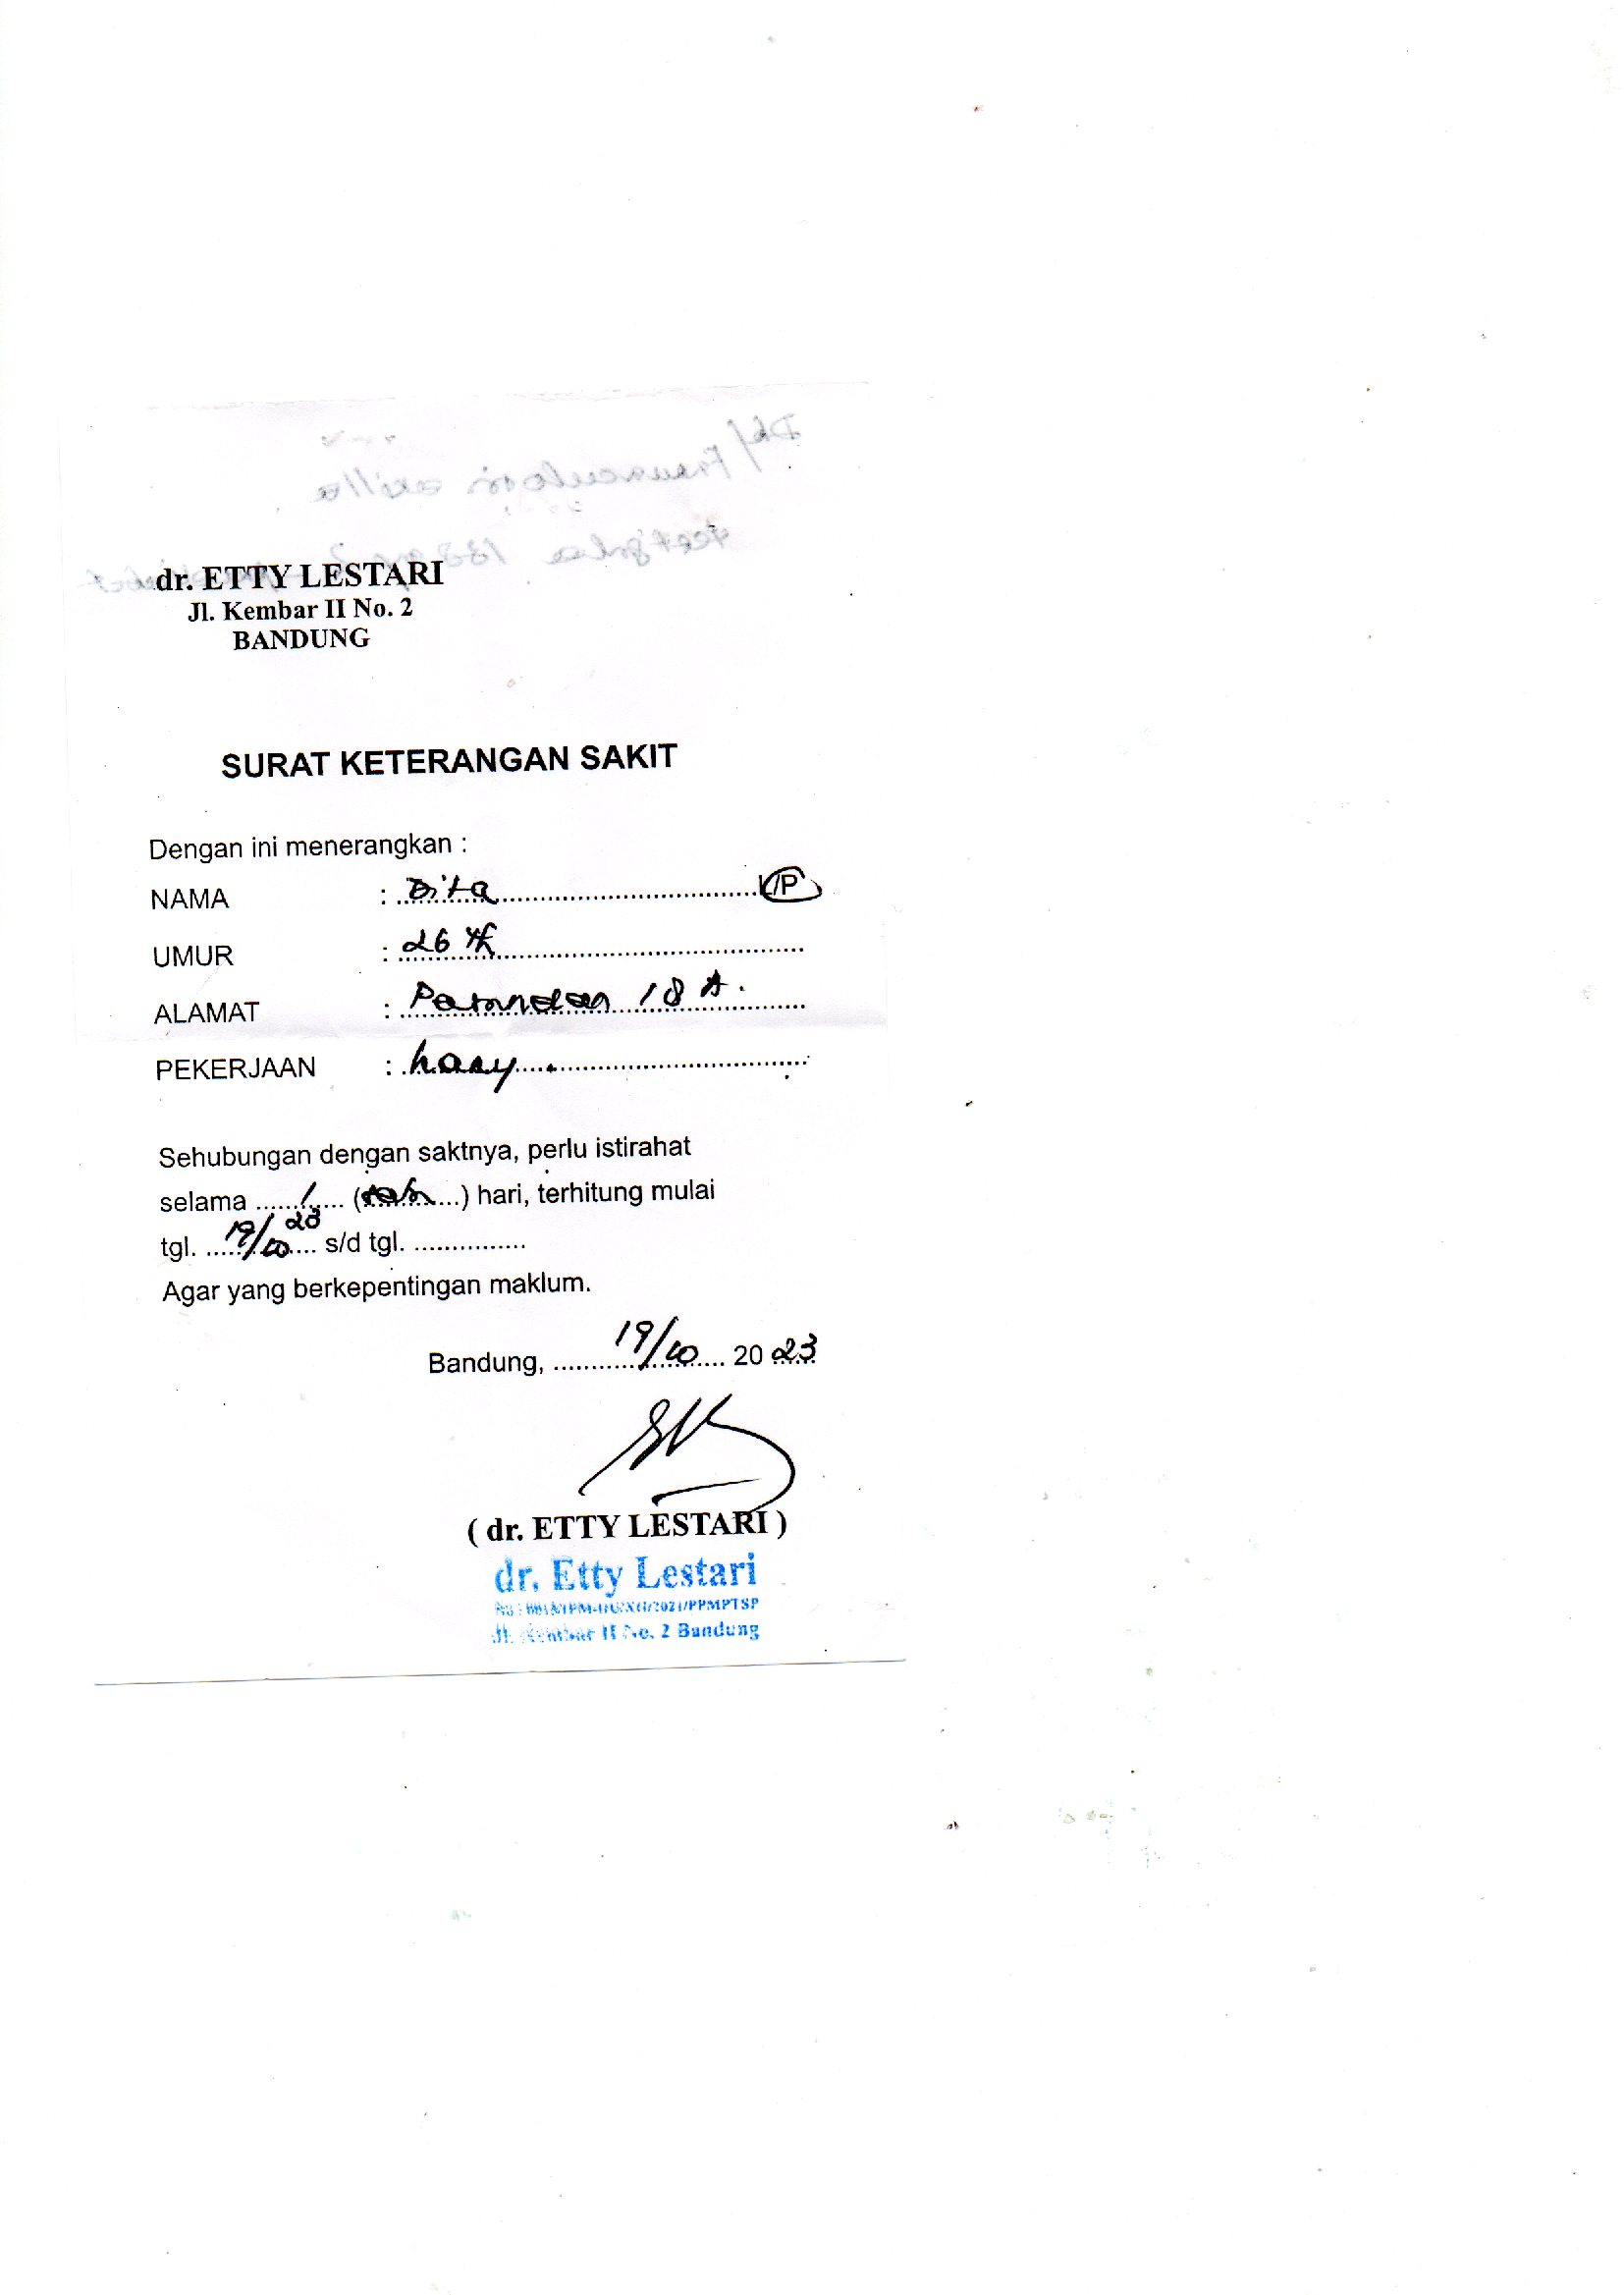 dr. ETTY LESTARI
Jl. Kembar II No. 2
BANDUNG
SURAT KETERANGAN SAKIT
Dengan ini menerangkan :
NAMA : Dita L/P
UMUR : 26 th
ALAMAT : 18 A.
PEKERJAAN :
Sehubungan dengan saktnya, perlu istirahat
selama ...... 1 ..... ( ) hari, terhitung mulai
tgl. 19/10 23 s/d tgl. ...............
Agar yang berkepentingan maklum.
Bandung, 19/10 20 23
( dr. ETTY LESTARI )
dr. Etty Lestari
Jl. Kembar II No. 2 Bandung